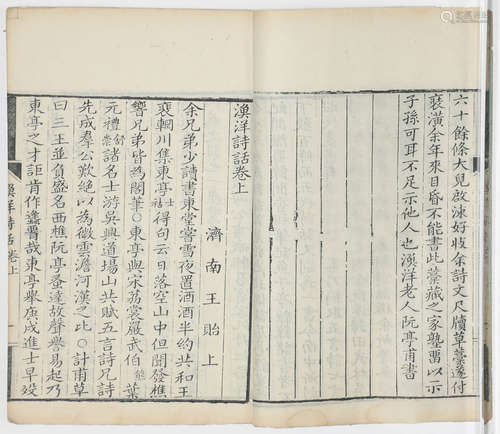 六十餘條大兒啟涑好收余詩文尺牘草藁遂付
裒潢余年來目昏不能書此藁藏之家塾留以示
子孫可耳不足示他人也漁洋老人阮亭甫書
漁洋詩話卷上
濟南王貽上
余兄弟少讀書東堂嘗雪夜置酒酒半約共和王
裴輞川集東亭士祜得句云日落空山中但聞發樵
響兄弟皆為閣筆○東亭與宋荔裳嚴武伯熊葉
元禮舒崇諸名士游吳興道場山共賦五言詩兄詩
先成羣公歎絕以為微雲澹河漢之比○計甫草
曰三王並負盛名西樵阮亭蚤達故聲譽易起乃
東亭之才詎肯作蠭腰哉東亭舉庚戌進士早歿
漁洋詩話卷上